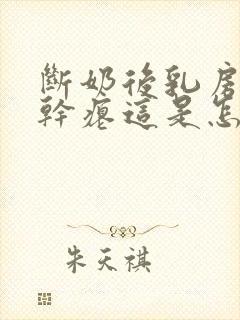 斷奶後乳房
幹癟這是怎
朱天祺